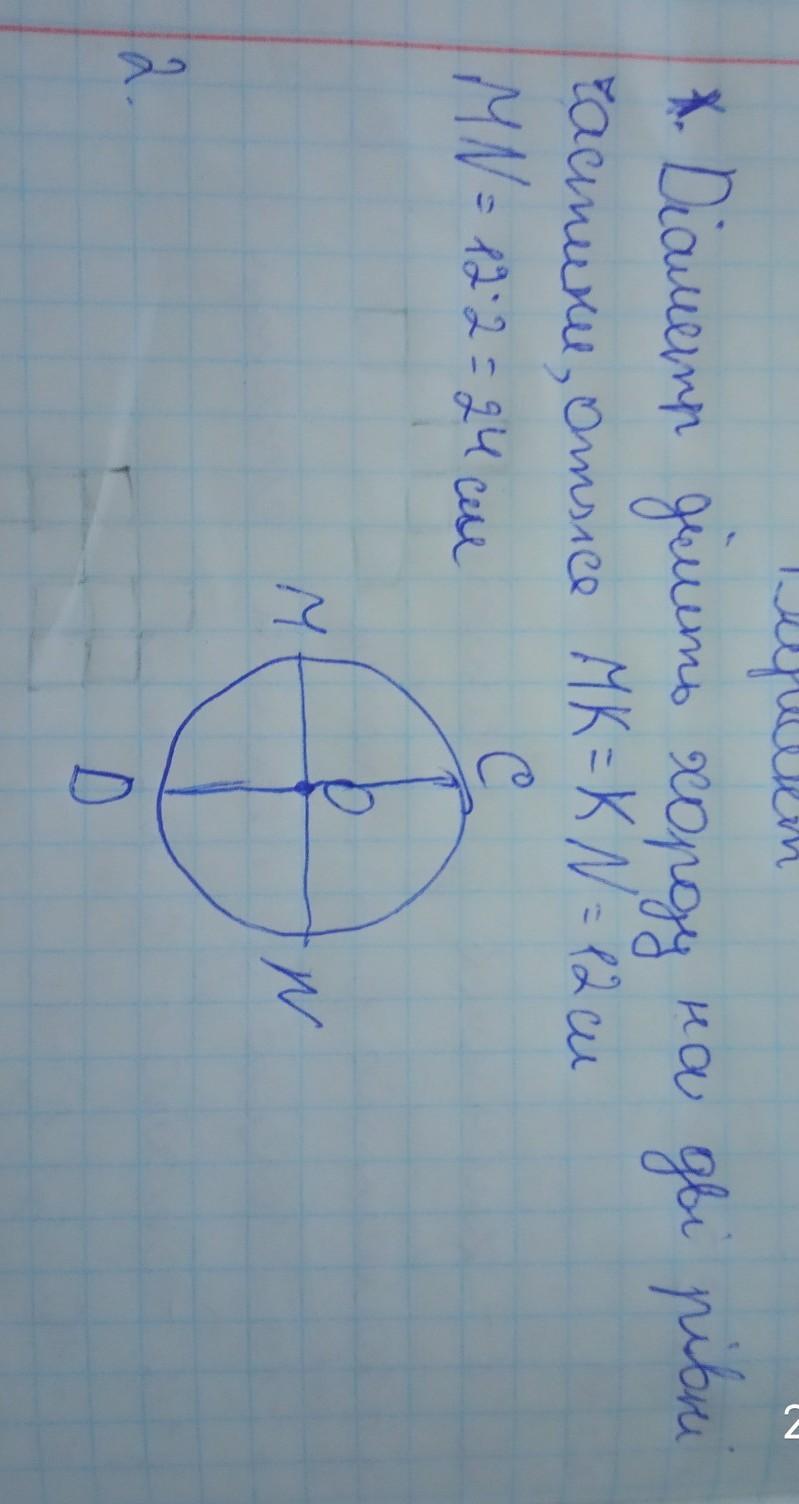 1. Діаметр ділить хорду на дві рівні
частини, отже MK = KN = 12 см
MN = 12·2 = 24 см
2.
C
M O N
D
2